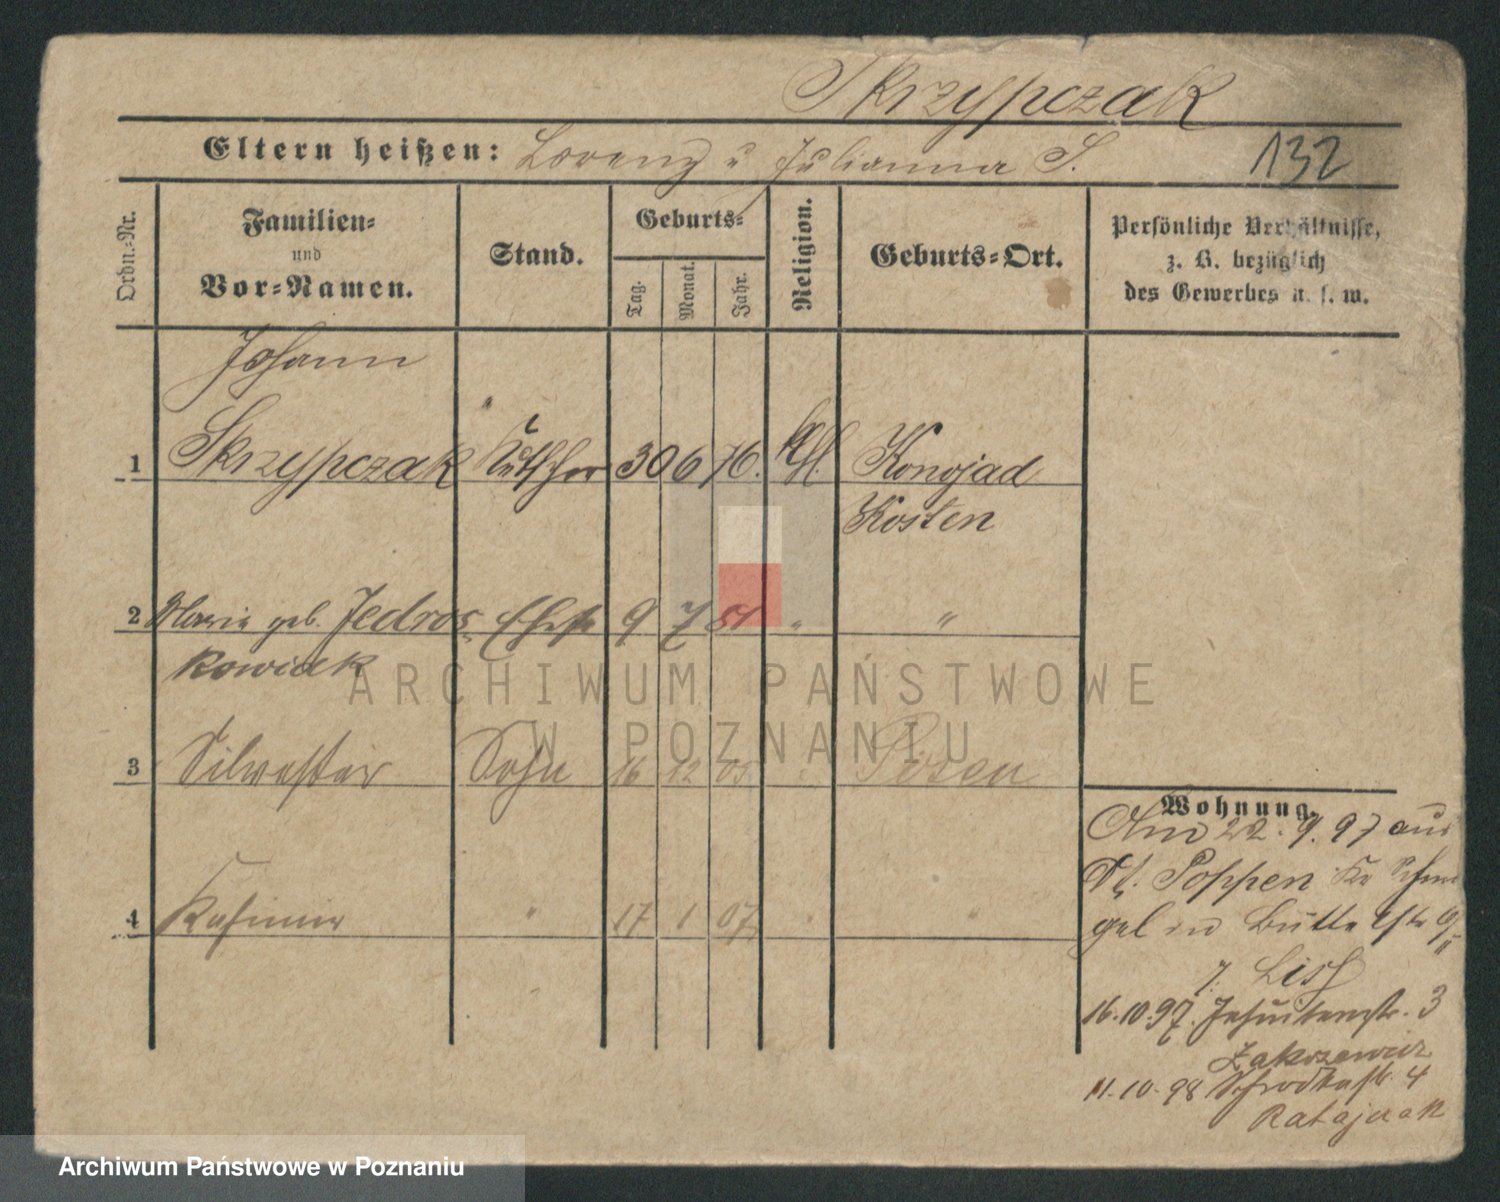 Skrzypczak
Eltern heißen: Lorenz u Julianna S.
132
Ordn.-Nr.
Familien-
und
Vor-Namen.
Stand.
Geburts-
Tag.
Monat.
Jahr.
Religion.
Geburts-Ort.
Persönliche Verhältnisse,
z. B. bezüglich
des Gewerbes u. s. w.
Johann
1 Skrzypczak Kutscher 30 6 76. kth. Konojad
Kosten
2 Maria geb. Jedros Ehefr 9 7 " "
kowiak
3 Silvester Sohn 16 12 05 " Posen
4 Kasimir " 17 1 07 " "
Wohnung.
Am 22.9.97 aus
Dt. Poppen Kr Schmie
gel in Buttelstr 9
b. Lisch
16.10.97. Jesuitenstr. 3
Zakrzewicz
11.10.98 Schrodkastr. 4
Ratajczak
ARCHIWUM PAŃSTWOWE
W POZNANIU
Archiwum Państwowe w Poznaniu